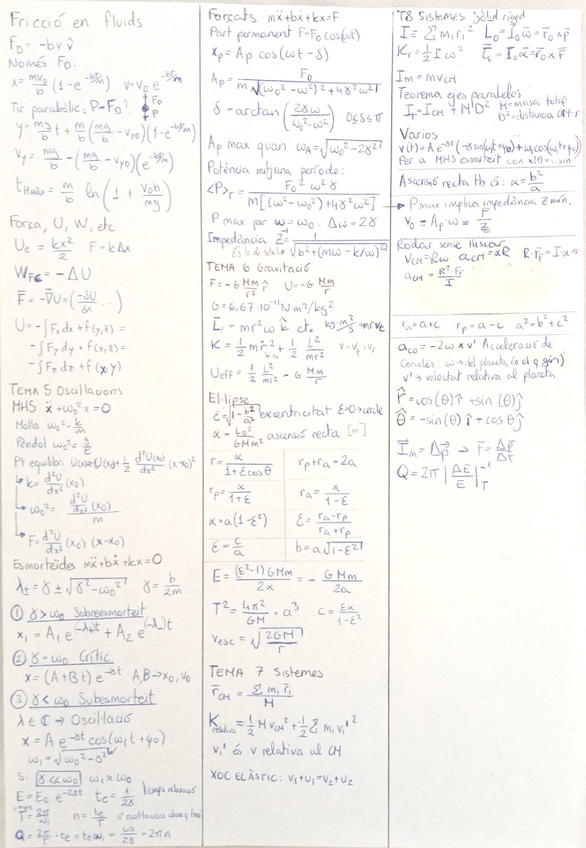 Fricció en fluids
F_D = -bv v̂
Només F_D:
x = mv₀/b (1 - e^(-bt/m))   v = v₀ e^(-bt/m)
Tir parabòlic: P-F_D?   F_D   P
y = mg/b t + m/b (mg/b - v_y0)(1 - e^(-bt/m))
v_y = mg/b - (mg/b - v_y0)(e^(-bt/m))
t_Hmàx = m/b ln(1 + v₀b/mg)
Força, U, W, etc
U_e = kx²/2   F = kΔx
W_FC = -ΔU
F̄ = -∇̄U = (-δU/δx ...)
U = -∫F_x dx + f(y,z) =
-∫F_y dy + f(x,z) =
-∫F_z dz + f(x,y)
TEMA 5 Oscil·lacions
MHS ẍ + ω₀²x = 0
Molla ω₀² = k/m
Pèndol ω₀² = g/ℓ
Pt equilibri U(x) ≈ U(x₀) + 1/2 d²U/dx² (x₀)(x-x₀)²
→ k = d²U/dx² (x₀)
→ ω₀² = d²U/dx² (x₀) / m
→ F = d²U/dx² (x₀) (x-x₀)
Esmorteïdes mẍ + bẋ + kx = 0
λ± = γ ± √(γ² - ω₀²)   γ = b/2m
① γ > ω₀ Sobreesmorteït
x₁ = A₁ e^(-λ₊)t + A₂ e^(-λ₋)t
② γ = ω₀ Crític
x = (A + Bt) e^(-γt)   A,B → x₀, v₀
③ γ < ω₀ Subesmorteït
λ ∈ ℂ ⇒ Oscil·lació
x = A e^(-γt) cos(ω₁t + φ₀)
ω₁ = √(ω₀² - γ²)
Si γ << ω₀   ω₁ ≈ ω₀
E = E₀ e^(-2γt)   t_c = 1/2γ   temps relaxació
T = 2π/ω₁   n = t_c/T
Q = 2π/T · t_c = t_c ω₁ = ω₁/2γ = 2πn
Forçats mẍ + bẋ + kx = F
Part permanent F = F₀ cos(ωt)
x_p = A_p cos(ωt - δ)
A_p = F₀ / m√((ω₀² - ω²)² + 4γ²ω²)
δ = arctan(2γω / ω₀² - ω²)   0 ≤ δ ≤ π
A_p max quan ω_A = √(ω₀² - 2γ²)
Potència mitjana període:
<P>_T = F₀² ω² γ / m[(ω² - ω₀²) + 4γ²ω²]
P max per ω = ω₀. Δω = 2γ
Impedància Z⁻¹ = 1 / √(b² + (mω - k/ω)²)
TEMA 6 Gravitació
F = -G Mm/r² r̂   U = -G Mm/r
G = 6,67·10⁻¹¹ N m²/kg²
L̄ = mr²ω k̂ ct. kg·m²/s = mrv_t
K = 1/2 mṙ² + 1/2 L²/mr²   v = v_t + v_r
Ueff = 1/2 L²/mr² - G Mm/r
El·lipse
ε = √(1 - b²/a²) excentricitat ε=0 → cercle
α = L₀²/GMm² ascensió recta [m]
r = α / 1 + ε cos θ   r_p + r_a = 2a
r_p = α / 1 + ε   r_a = α / 1 - ε
α = a(1 - ε²)   ε = r_a - r_p / r_a + r_p
ε = c/a   b = a√(1 - ε²)
E = (ε² - 1) GMm / 2α = - GMm / 2a
T² = 4π²/GM · a³   c = εα / 1 - ε²
v_esc = √(2GM/r)
TEMA 7 Sistemes
r̄_CM = Σ m_i r̄_i / M
K_relativa = 1/2 M v_CM² + 1/2 Σ m_i v_i'²
v_i' és v relativa al CM
XOC ELÀSTIC: v₁ + u₁ = v₂ + u₂
T8 Sistemes sòlid rígid
I = Σ m_i r_i²   L̄₀ = I₀ω̄ = r̄₀ × p̄
K_r = 1/2 I ω²   τ̄₀ = I₀ᾱ = r̄₀ × F̄
I_m = mv_CM
Teorema ejes paralelos
I_T = I_CM + MD²   M = massa total
D² = distància CM-r
Varios
v(t) = A e^(-γt) (-γ sin(ω₁t + φ₀) + ω₁ cos(ω₁t + φ₀))
Per a MHS consistent con x(t) = ... sin
Ascensió recta Hb és: α = b²/a
→ P max implica impedància Z mín.
v₀ = A_p · ω = F/Z
Rodar sense lliscar
v_CM = Rω   a_CM = αR   R·F_r = I·α →
a_CM = R²·F_r / I
r_a = a + c   r_p = a - c   a² = b² + c²
a_co = -2ω × v' Acceleració de
Coriolis: ω → del planeta (o el q giri)
v' → velocitat relativa al planeta
r̂ = cos(θ) î + sin(θ) ĵ
θ̂ = -sin(θ) î + cos θ ĵ
Ī_m = Δp̄ → F̄ = Δp̄/Δt
Q = 2π |ΔE/E|_T⁻¹